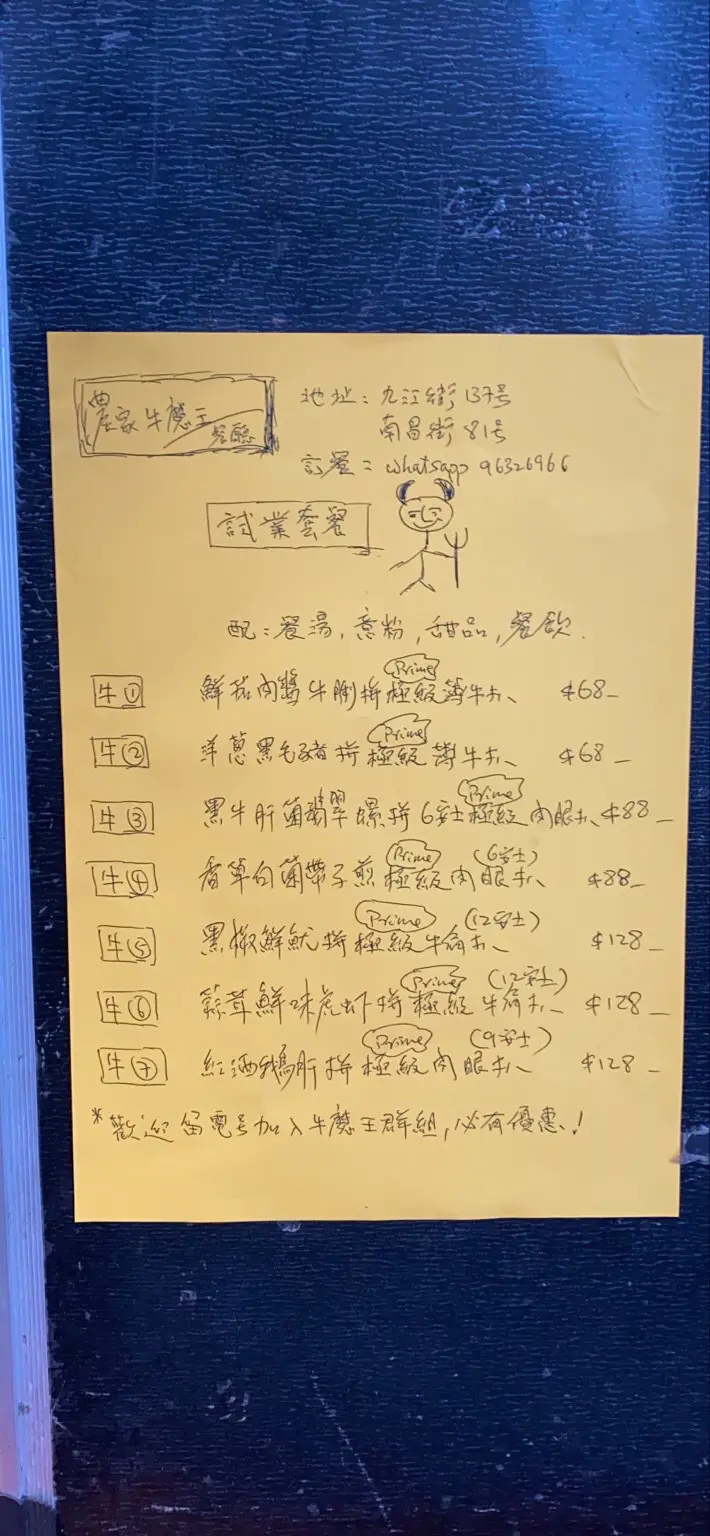 農家牛魔王餐廳
地址: 九江街 137号
南昌街 81号
訂餐= whatsapp 96326966
試業套餐
配: 餐湯, 意粉, 甜品, 餐飲.
牛① 鮮茄肉醬牛脷拼 Prime 極級薄牛扒 $68_
牛② 洋蔥黑毛豬拼 Prime 極級薄牛扒 $68_
牛③ 黑牛肝菌翡翠螺拼6安士 Prime 極級肉眼扒 $88_
牛④ 香草白菌帶子煎 Prime 極級肉眼扒 (6安士) $88_
牛⑤ 黑椒鮮魷拼 Prime 極級牛扒 (12安士) $128_
牛⑥ 蒜茸鮮味虎虾拼 Prime 極級牛扒 (12安士) $128_
牛⑦ 红酒鵝肝拼 Prime 極級肉眼扒 (9安士) $128_
*歡迎留電号加入牛魔王群組, 必有優惠!